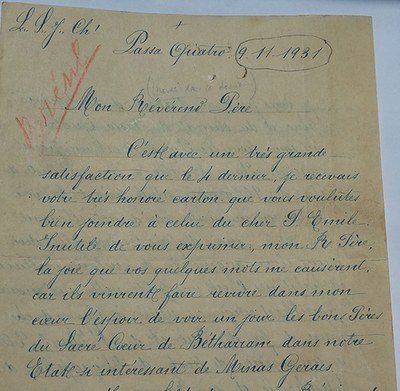 L. S. J. Ch!
+
Passa Quatro 9-11-1931
Brésil
Mon Révérend Père
C'est avec une très grande
satisfaction que le 4 dernier, je recevais
votre très honoré carton que vous voulûtes
bien joindre à celui du cher P. Emile.
Inutile de vous exprimer, mon R. Père,
la joie que vos quelques mots me causèrent,
car ils vinrent faire revivre dans mon
cœur l'espoir de voir un jour les bons Pères
du Sacré Cœur de Bétharram dans notre
Etat si intéressant de Minas Geraes.